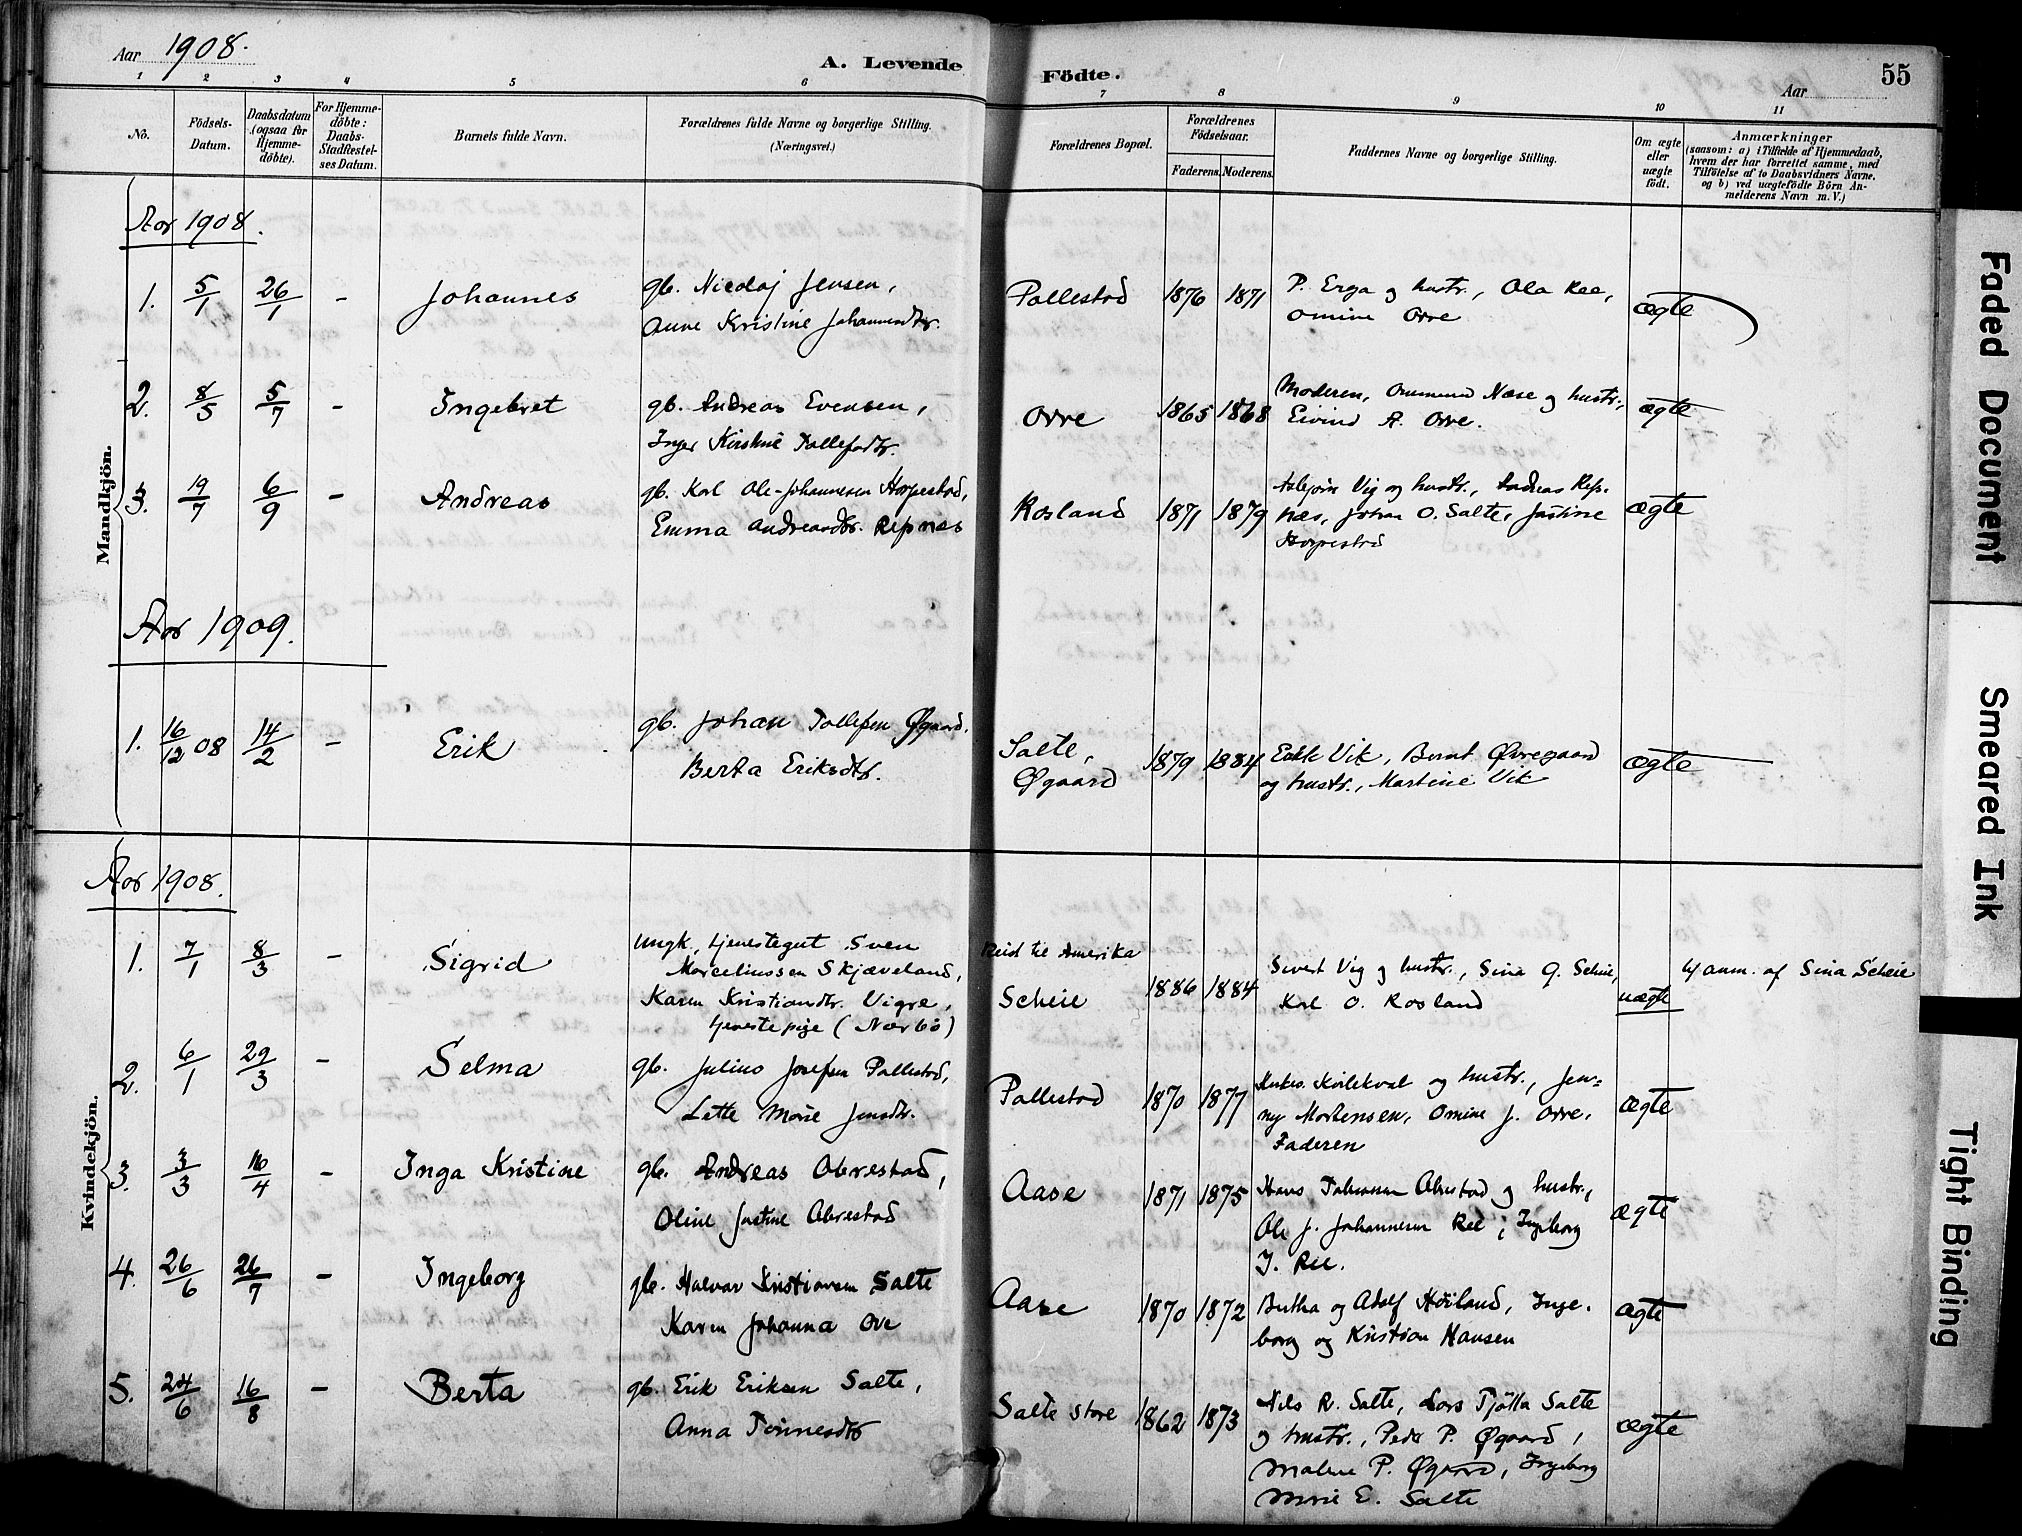 Aar 1908.
A. Levende Födte.
Aar
55
1 2 3 4 5 6 7 8 9 10 11
No.
Födsels-Datum.
Daabsdatum (ogsaa for Hjemme-döbte).
For Hjemme-döbte: Daabs-Stadfæstel-ses Datum.
Barnets fulde Navn.
Forældrenes fulde Navne og borgerlige Stilling.
(Næringsvei.)
Forældrenes Bopæl.
Forældrenes Födselsaar.
Faderens. Moderens.
Faddernes Navne og borgerlige Stilling.
Om ægte eller uægte födt.
Anmærkninger
(saasom: a) i Tilfælde af Hjemmedaab,
hvem der har forrettet samme, med
Tilföielse af to Daabsvidners Navne.
og b) ved uægtefödte Börn An-
melderens Navn m. V.)
Mandkjön.
Aar 1908.
1. 5/1 26/1 - Johannes gb. Nicolaj Jensen, Pollestad 1876 1871 P. Erga og hustr., Ola Ree, ægte
Anne Kristine Johannesdtr. Omine Orre
2. 8/5 5/7 - Ingebret gb. Andreas Evensen, Orre 1865 1868 Moderen, Ommund Næse og hustr., ægte
Inger Kirstine Tollefsdtr. Eivind A. Orre.
3. 19/7 6/9 - Andreas gb. Karl Ole-Johannesen Horpestad, Rosland 1871 1879 Asbjørn Vig og hustr., Andreas Rep- ægte
Emma Andreasdtr. Repnæs næs, Johan O. Salte, Justine
Horpestad
Aar 1909.
1. 16/12 08 14/2 - Erik gb. Johan Tollefsen Øgaard, Salte, 1879 1884 Eskk Vik, Bernt Øvregaard ægte
Berta Eriksdtr. Øgaard og hustr., Martine Vik
Kvindekjön.
Aar 1908.
1. 7/1 8/3 - Sigrid ungk., tjenestegut Sven Reist til Amerika 1886 1884 Sivert Vig og hustr., Sina G. Scheie, uægte anm. af Sina Scheie
Marceliussen Skjæveland, Scheie Karl O. Rosland
Karen Kristiandtr. Vigre,
tjenestepige (Nærbø)
2. 6/1 29/3 - Selma gb. Julius Josefsen Pollestad, Pollestad 1870 1877 Kirkes. Kvilekval og hustr., Jen-
Lette Marie Jensdtr. ny Mortensen, Omine J. Orre, ægte
Faderen
3. 3/3 16/4 - Inga Kristine gb. Andreas Obrestad, Aase 1871 1875 Hans Obrestad og hustr.,
Oline Justine Obrestad Ole J. Johannesen Ree, Ingeborg ægte
J. Ree.
4. 26/6 26/7 - Ingeborg gb. Halvar Kristiansen Salte Aase 1870 1872 Bertha og Adolf Høiland, Inge- ægte
Karen Johanna Ore borg og Kristian Hansen
5. 24/6 16/8 - Berta gb. Erik Eriksen Salte, Salte store 1862 1873 Nils R. Salte, Lars Tjøtta Salte ægte
Anna Tønnesdtr og hustr., Peder P. Øgaard,
Malene P. Øgaard, Ingeborg
Marie E. Salte
Faded Document
Smeared Ink
Tight Binding